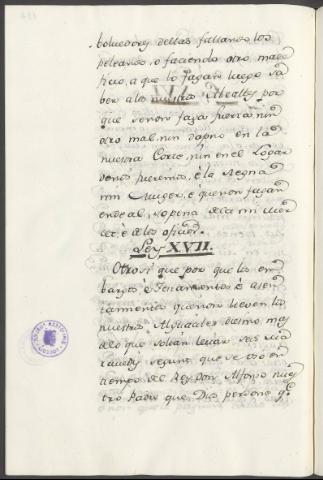 boluedores dellas fallando los
peleando, o faciendo otro male
ficio, a que lo fagan luego sa
ber a los nuestros Alcaldes por
que se non faza fuerza, nin
otro mal, nin dapno en la
nuestra Corte, nin en el Logar
do nos fueremos, è la Regna
mi Muger, è que non fagan
ende al, so pena de la mi mer
cet, è de los oficios.
Ley XVII.
Otro si que por que los em
bargos è Testamentos è asen
tamientos que non lieven los
nuestros Alguaciles diezmo mas
de lo que solian levar seis ma
ravedis segunt que se uso en
tiempo del Rey Don Alfonso nues
tro Padre que Dios perdone q.e